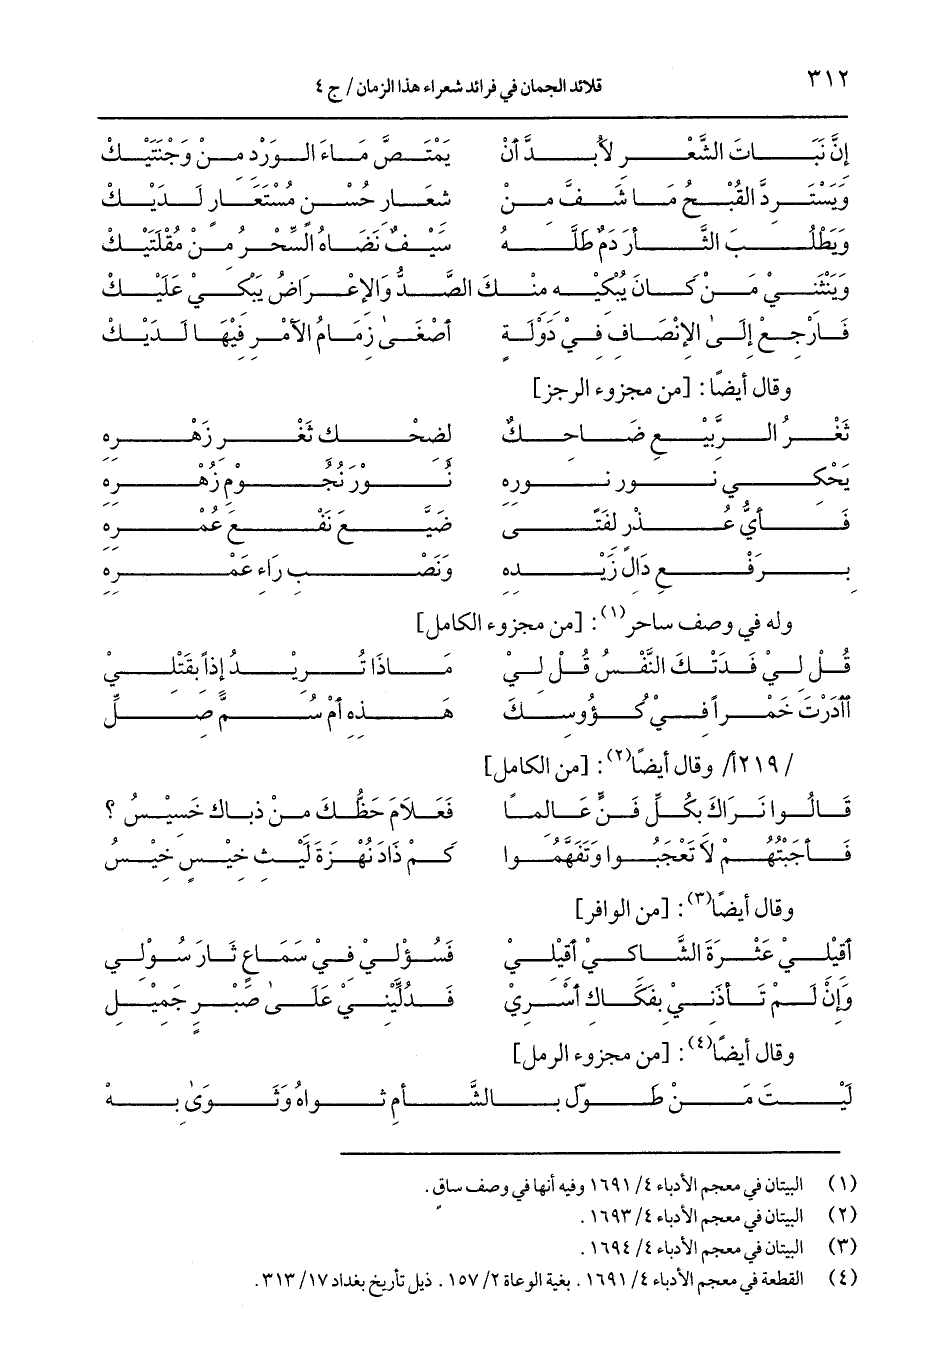 ٣١٢ قلائد الجمان في فرائد شعراء هذا الزمان / ج ٤
إنَّ نَبَاتَ الشَّعْرِ لأَبُدَّ أنْ يَمْتَصَّ مَاءَ الوَرْدِ مِنْ وَجْنَتَيْكْ
وَيَسْتَرِدَّ القُبْحُ مَا شَفَّ مِنْ شعَارِ حُسْنٍ مُسْتَعَارٍ لَدَيْكْ
وَيَطْلُبَ الثَّارَ دَمٌ طَلَّهُ سَيْفٌ نَضَاهُ السِّحْرُ مِنْ مُقْلَتَيْكْ
وَيَنْثَنِي مَنْ كَانَ يُبْكِيْهِ مِنْكَ الصَّدُّ وَالإعْرَاضُ يَبْكِي عَلَيْكْ
فَارْجِعْ إلَى الإنْصَافِ فِيْ دَوْلَةٍ أصْغَى زِمَامُ الأمْرِ فِيْهَا لَدَيْكْ
وقال أيضاً: [من مجزوء الرجز]
ثَغْرُ الرَّبِيْعِ ضَاحِكٌ لِضِحْكِ ثَغْرِ زَهْرِهِ
يَحْكِي نُورِ نورهِ نُورَ نُجُومِ زُهْرِهِ
فَأيُّ عُذْرٍ لفَتًى ضَيَّعَ نَفْعَ عُمْرِهِ
بِرَفْعِ دَالِ زَيْدِهِ وَنَصْبِ رَاءِ عَمْرِهِ
وله في وصف ساحرٍ(١): [من مجزوء الكامل]
قُلْ لِيْ فَدَتْكَ النَّفْسُ قُلْ لِيْ مَاذَا تُرِيْدُ إذاً بقَتْلِيْ
أأدَرْتَ خَمْراً فِيْ كُؤُوسِكَ هَذِهِ أمْ سُمَّ صِلِّ
/٢١٩أ/ وقال أيضاً(٢): [من الكامل]
قَالُوا نَرَاكَ بِكُلِّ فَنٍّ عَالِماً فَعَلاَمَ حَظُّكَ مِنْ ذباك خَسِيْسُ ؟
فَأجَبْتُهُمْ لاَ تَعْجَبُوا وَتَفَهَّمُوا كَمْ ذَادَ نُهْزَةَ لَيْثِ خِيْسٍ خِيْسُ
وقال أيضاً(٣): [من الوافر]
أقِيْلِيْ عَثْرَةَ الشَّاكِيْ أقِيْلِيْ فَسُؤْلِيْ فِيْ سَمَاعِ ثَارَ سُوْلِي
وَإنْ لَمْ تَأذَنِيْ بِفَكَاكِ أسْرِيْ فَدُلِّيْنِيْ عَلَى صَبْرٍ جَمِيْلِ
وقال أيضاً(٤): [من مجزوء الرمل]
لَيْتَ مَنْ طَوَّلَ بِالشَّأمِ ثواهُ وَثَوَى بِهْ
(١) البيتان في معجم الأدباء ٤/ ١٦٩١ وفيه أنها في وصف ساقٍ.
(٢) البيتان في معجم الأدباء ٤/ ١٦٩٣.
(٣) البيتان في معجم الأدباء ٤/ ١٦٩٤.
(٤) القطعة في معجم الأدباء ٤/ ١٦٩١. بغية الوعاة ٢/ ١٥٧. ذيل تأريخ بغداد ١٧/ ٣١٣.